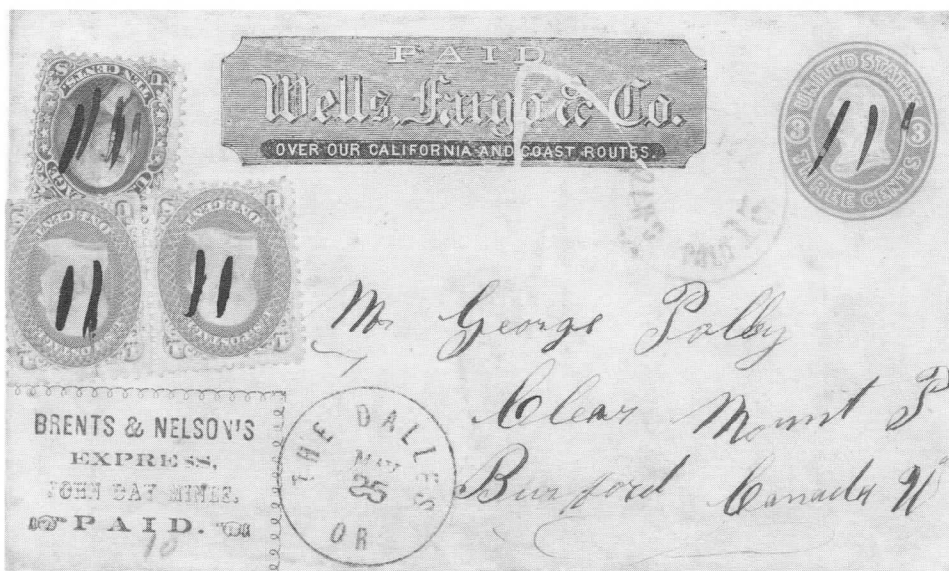 PAID
Wells, Fargo & Co.
OVER OUR CALIFORNIA AND COAST ROUTES.
UNITED STATES
3 3
THREE CENTS
PAID
Mr George
Clear Mount P
Burford Canada W
BRENTS & NELSON'S
EXPRESS,
JOHN DAY MINES.
PAID.
10
THE DALLES
MAY
25
OR